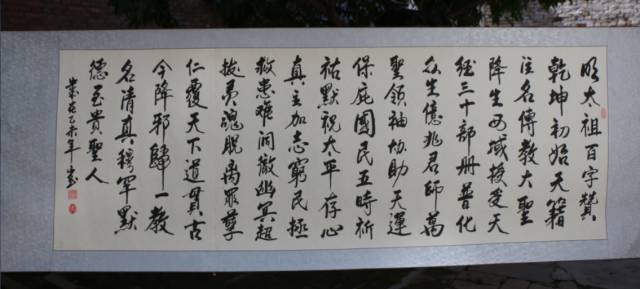 明太祖百字贊
乾坤初始天籍
注名傳教大聖
降生西域授受天
經三十部册普化
众生億兆君師萬
聖領袖協助天運
保庇國民五時祈
祐默祝太平存心
真主加志窮民拯
救患难洞徹幽冥超
拔灵魂脱离罪孽
仁覆天下道貫古
今降邪歸一教
名清真穆罕默
德至貴聖人
乙未年书